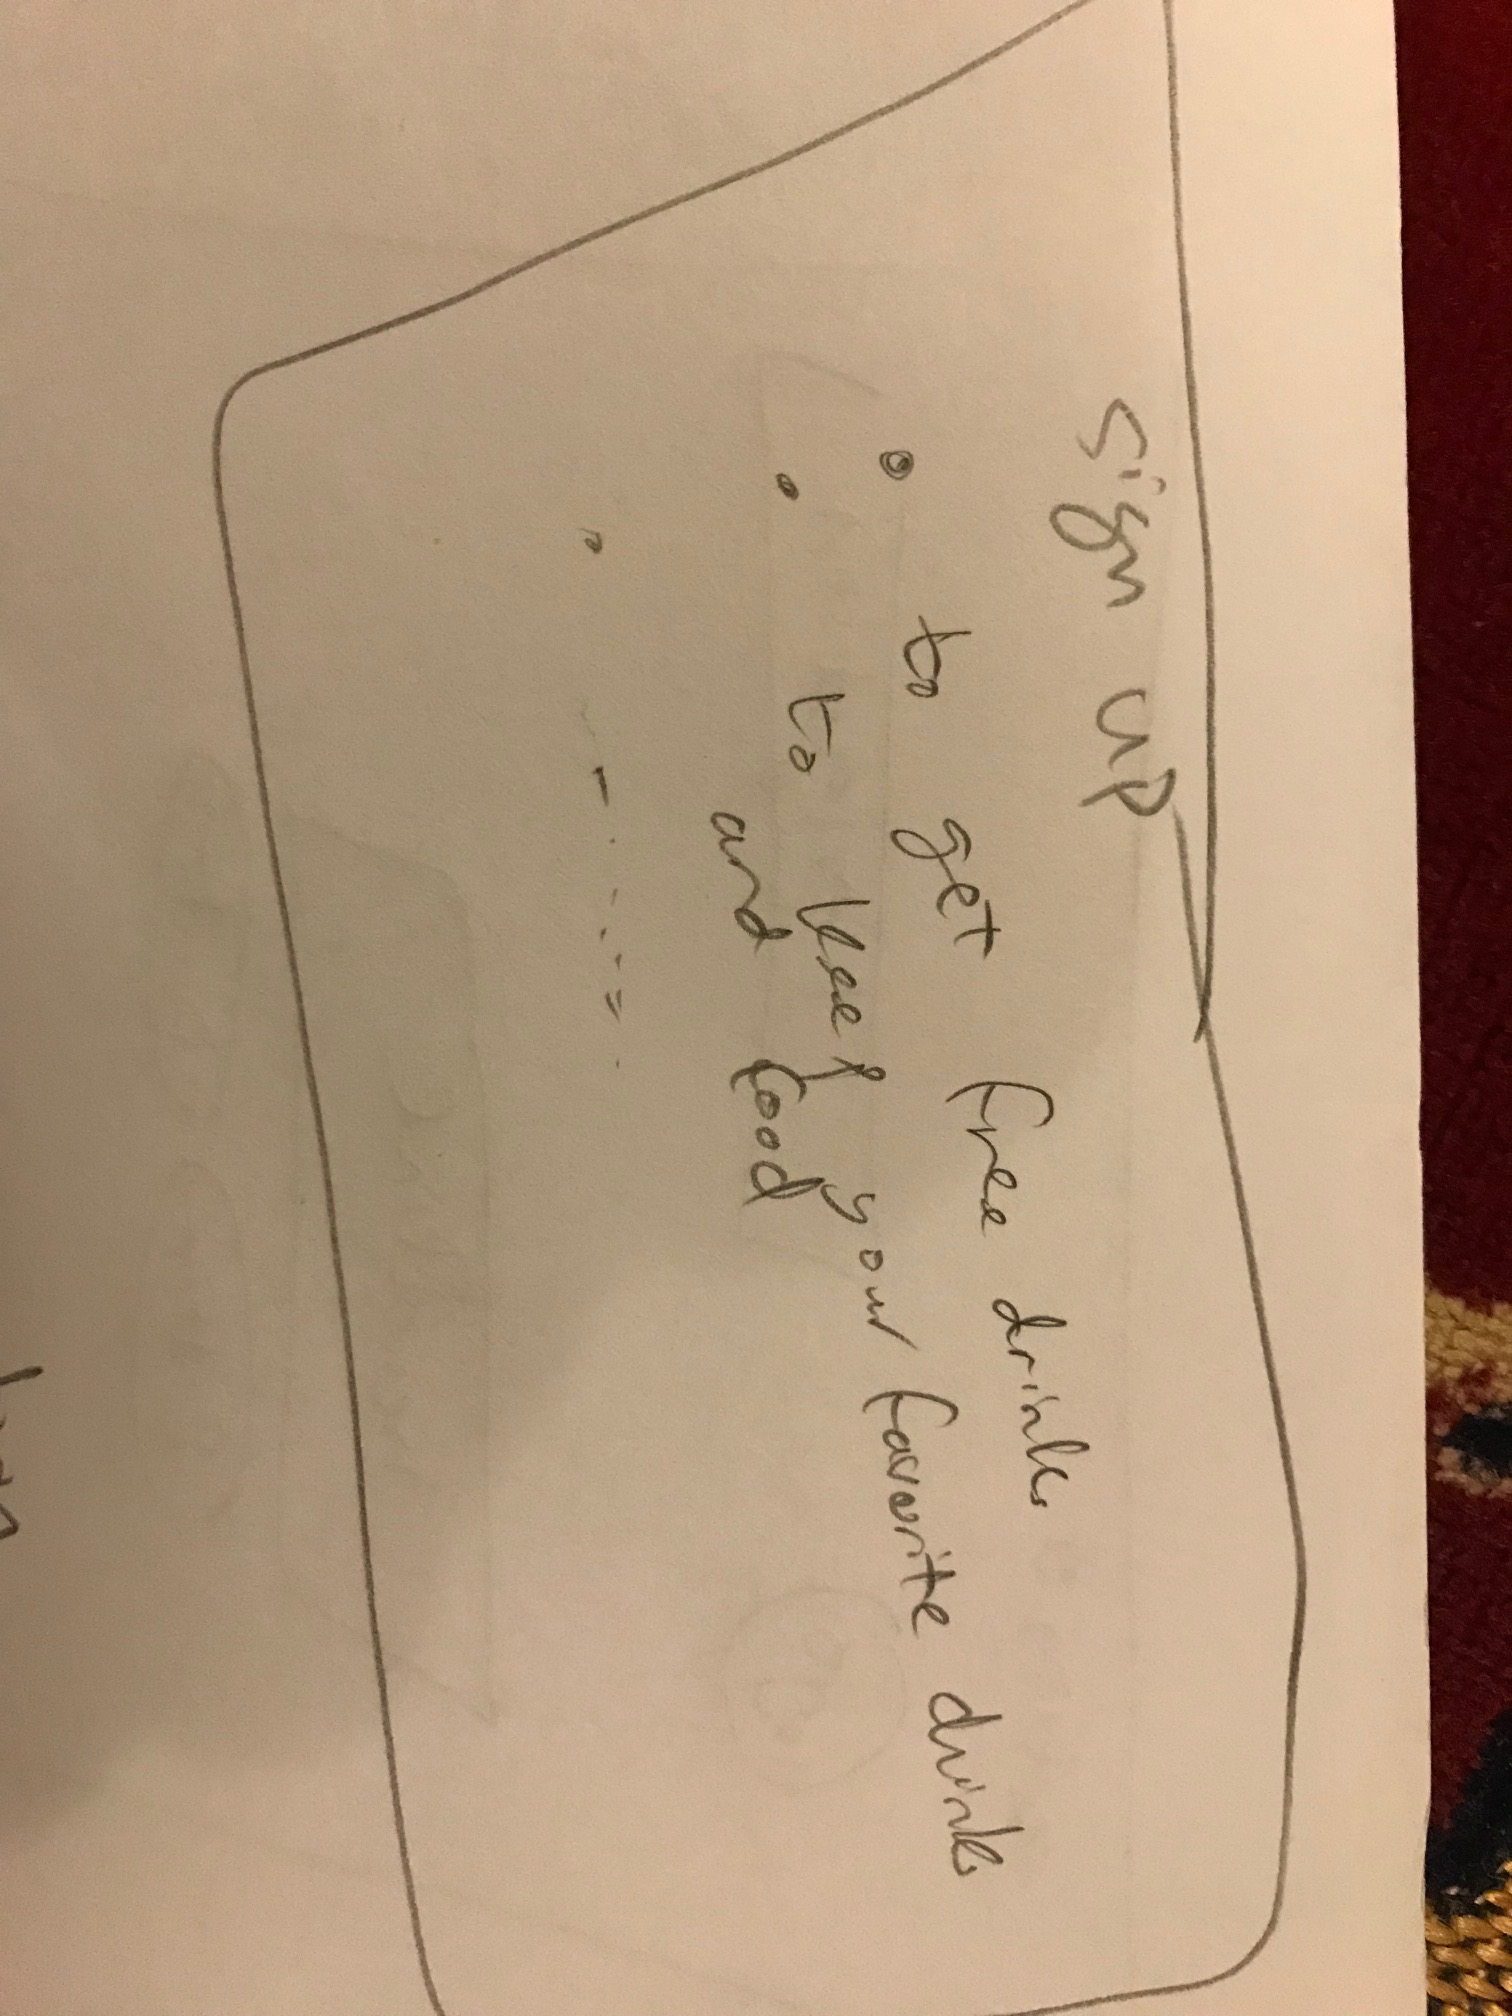 sign up
• to get free drinks
• to keep your favorite drinks
and food
•